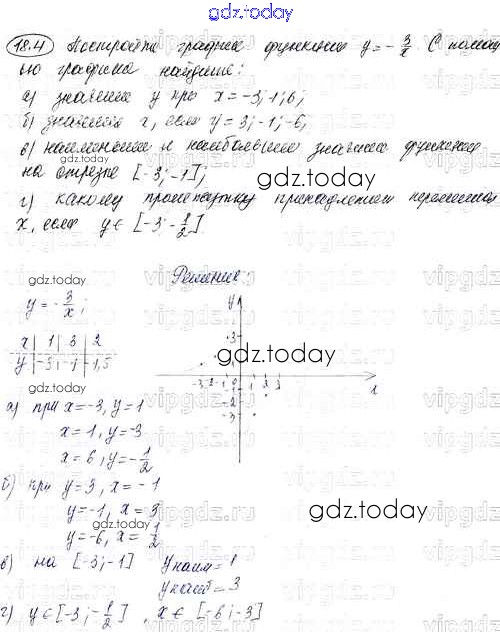 gdz.today
18.4 Построить график функции y = -3/x С помощ
ью графика найдите:
а) значение y при x = -3; 1; 6;
б) значения x, если y = 3; -1; -6,
в) наименьшее и наибольшее значение функции
на отрезке [-3; -1];
gdz.today
г) какому промежутку принадлежит переменная
x, если y ∈ [-3; -1/2]
gdz.today
Решение:
y = -3/x;
x | 1 | 3 | 2
y | -3 | -1 | -1,5
y
3
-3 -2 -1 0 1 2 3
x
-2
-3
gdz.today
gdz.today
а) при x = -3, y = 1
x = 1, y = -3
x = 6, y = -1/2
б) при y = 3, x = -1
y = -1, x = 3
gdz.today
y = -6, x = 1/2
gdz.today
в) на [-3; -1] y наим = 1
y наиб = 3
г) y ∈ [-3; -1/2], x ∈ [-6; -3]